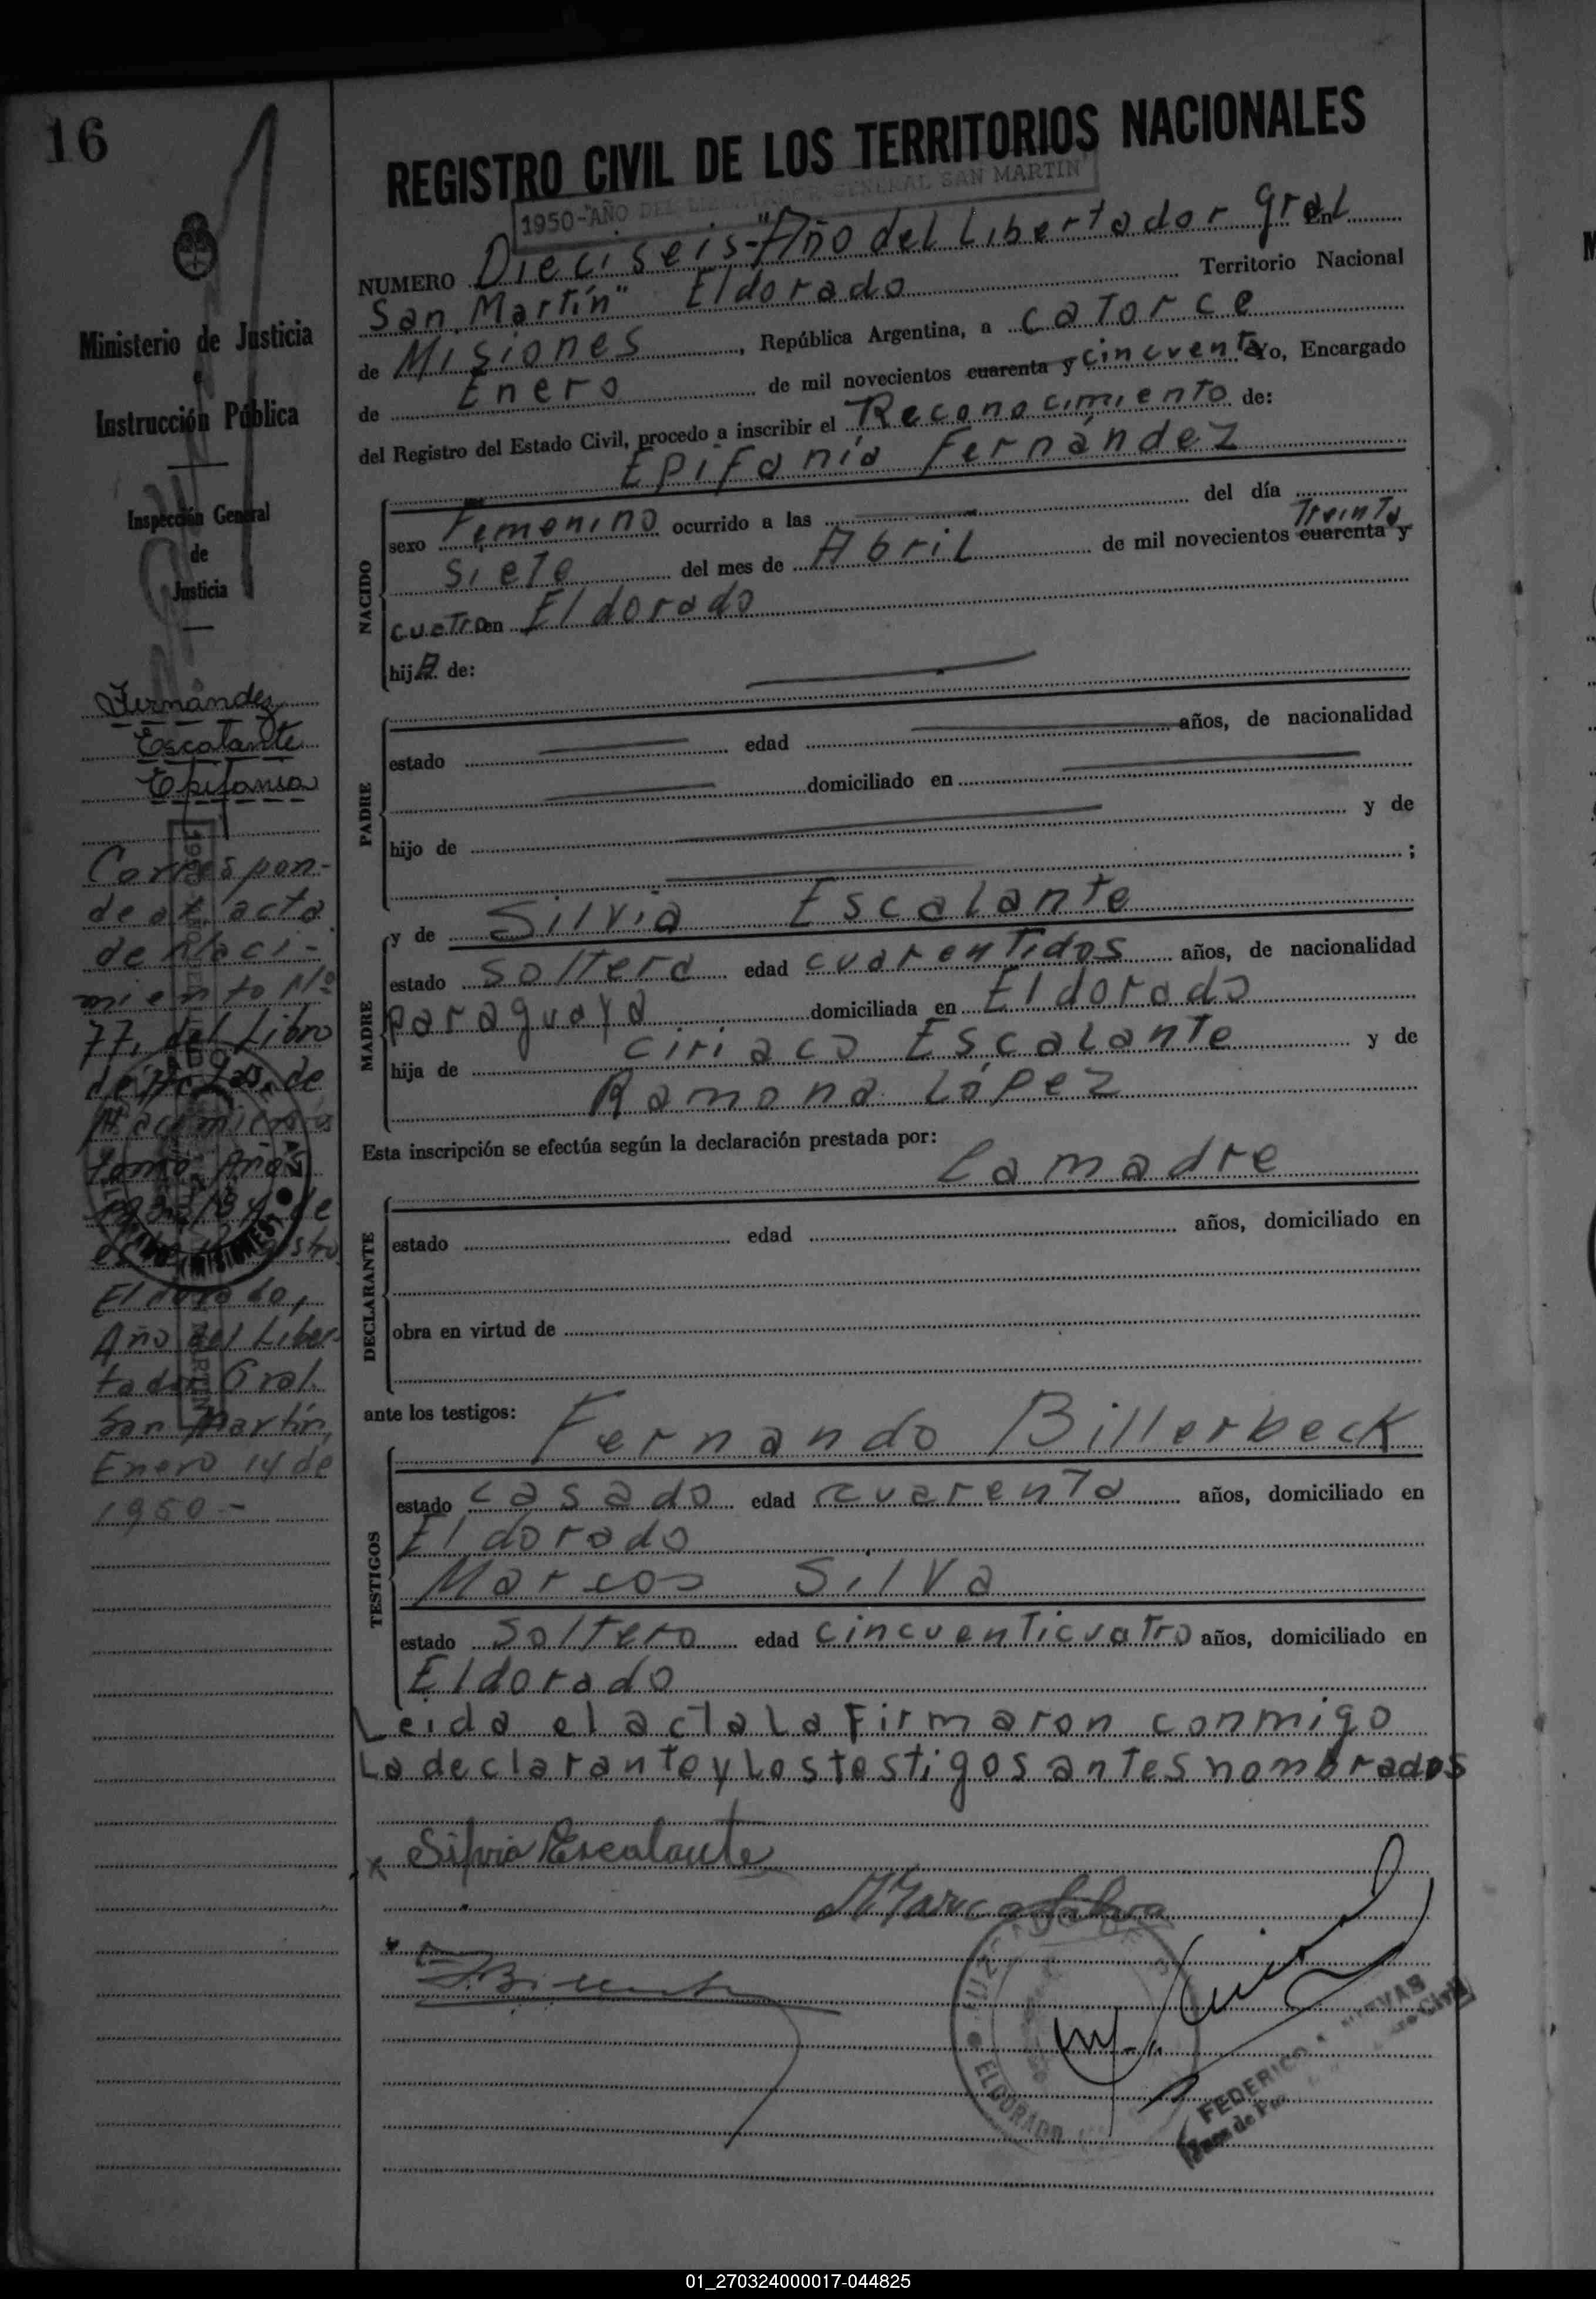 16
Ministerio de Justicia
e
Instrucción Pública
Inspección General
de
Justicia
Fernández
Escalante
Epifania
Corres pon-
de al acta
de Naci-
miento Nº
77, del Libro
de Actas de
Nacimientos
tomo: Años
de
El dorado,
Año del Liber-
tador Gral.
San Martín,
Enero 14 de
1950-
REGISTRO CIVIL DE LOS TERRITORIOS NACIONALES
1950-"AÑO DEL LIBERTADOR GENERAL SAN MARTIN"
NUMERO Dieciseis-"Año del Libertador Gral En
San Martín" Eldorado Territorio Nacional
de Misiones, República Argentina, a catorce
de Enero de mil novecientos cuarenta y cincuenta Yo, Encargado
del Registro del Estado Civil, procedo a inscribir el Reconocimiento de:
Epifania Fernández
NACIDO
sexo Femenino ocurrido a las del día
siete del mes de Abril de mil novecientos cuarenta y Treinta
cuatro en Eldorado
hija de:
PADRE
estado edad años, de nacionalidad
domiciliado en
hijo de y de
;
MADRE
y de Silvia Escalante
estado soltera edad cuarentidos años, de nacionalidad
paraguaya domiciliada en Eldorado
hija de Ciriaco Escalante y de
Ramona López
Esta inscripción se efectúa según la declaración prestada por:
La madre
DECLARANTE
estado edad años, domiciliado en
obra en virtud de
ante los testigos:
Fernando Billerbeck
TESTIGOS
estado casado edad cuarenta años, domiciliado en
Eldorado
Marcos Silva
estado soltero edad cincuenticuatro años, domiciliado en
Eldorado
Leida el acta La Firmaron conmigo
La declarante y Los testigos antes nombrados
x Silvia Escalante
Marcos Silva
ELDORADO
FEDERICO
Juez de Paz
Civil
01_270324000017-044825